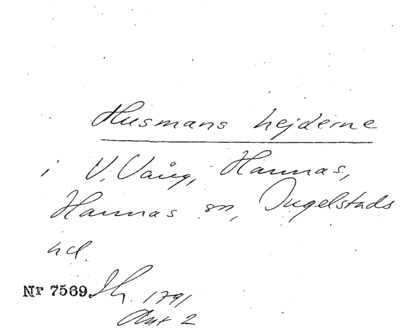 Husmans hejderne
i V. Vång, Hannas,
Hannas sn, Ingelstads
hd.
Nr 7569. Sk. 1791
Akt 2